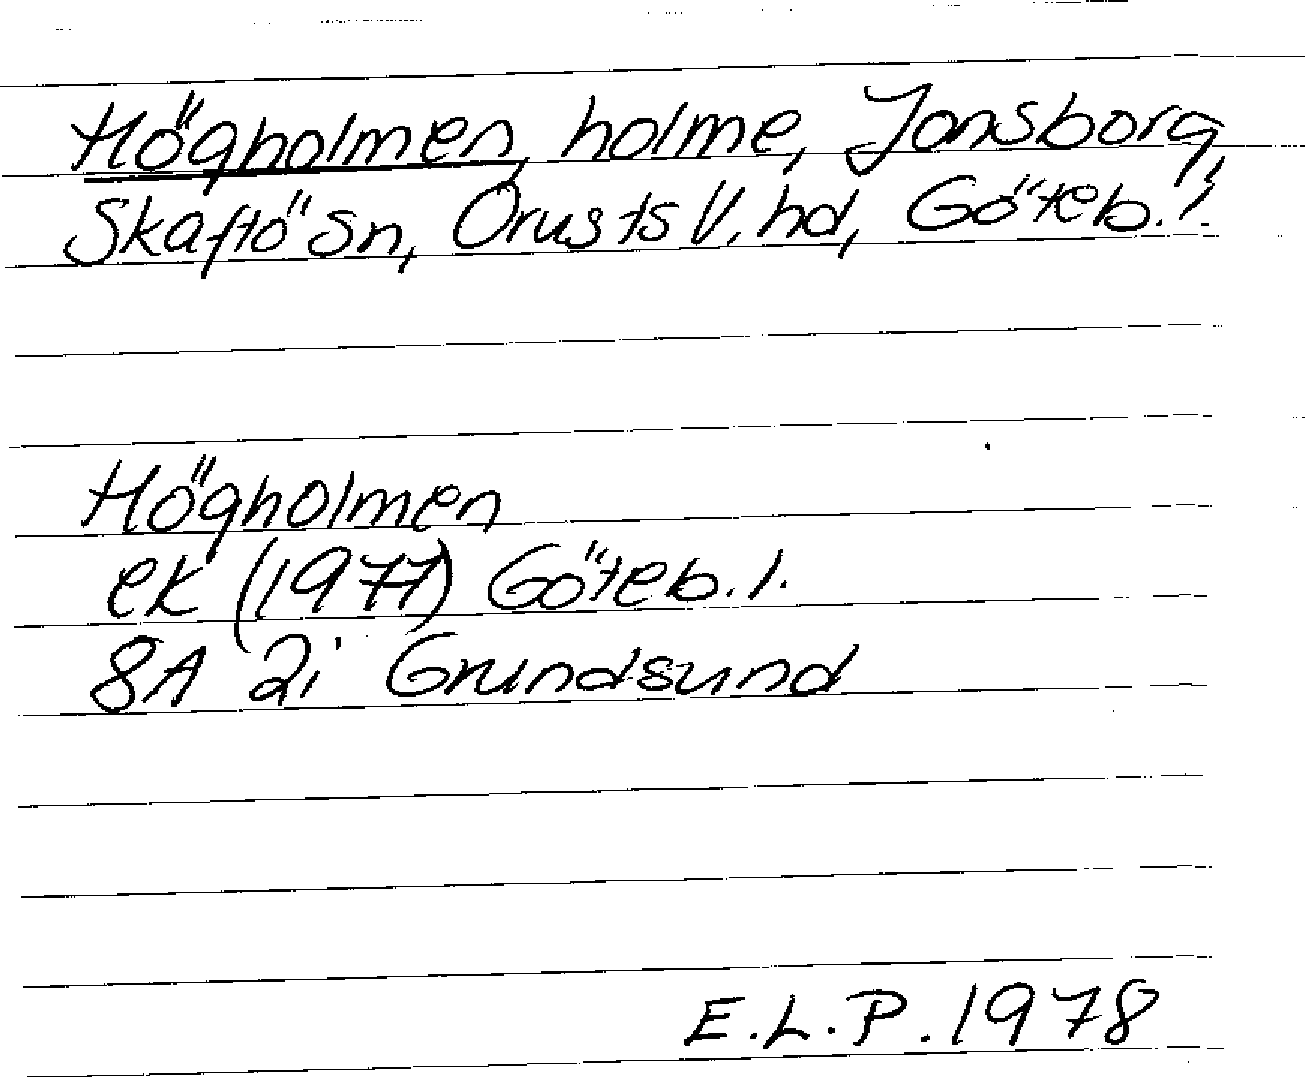 Högholmen, holme, Jonsborg,
Skaftö sn, Orusts V. hd, Göteb. l.
Högholmen
ek (1977) Göteb. l.
8A 2i Grundsund
E.L.P. 1978